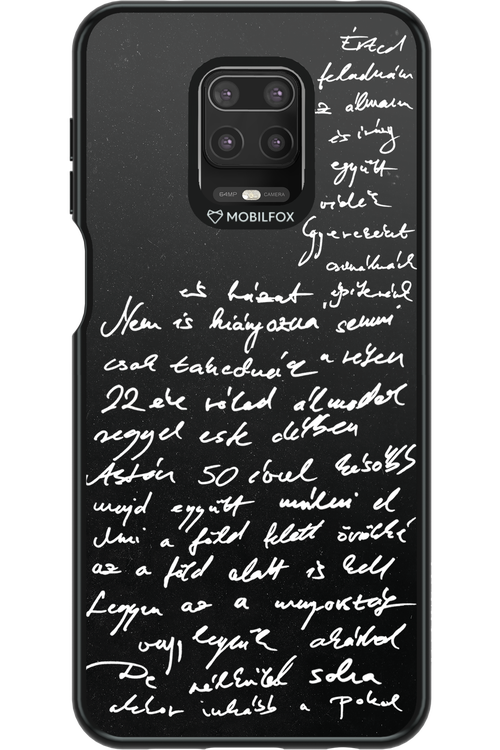 Érted
feladnám
az álmam
és irány
együtt
vidék
Gyereket
csinálnák
és házat építenék
Nem is hiányozna semmi
csak takednák a réten
22 éve rólad álmodok
reggel este délben
Aztán 50 évvel később
majd együtt múlni el
Ami a föld felett örökké
az a föld alatt is kell
Legyen az a mennyország
vagy legyünk akárhol
De nélküled soha
akkor inkább a pokol
64MP CAMERA
MOBILFOX